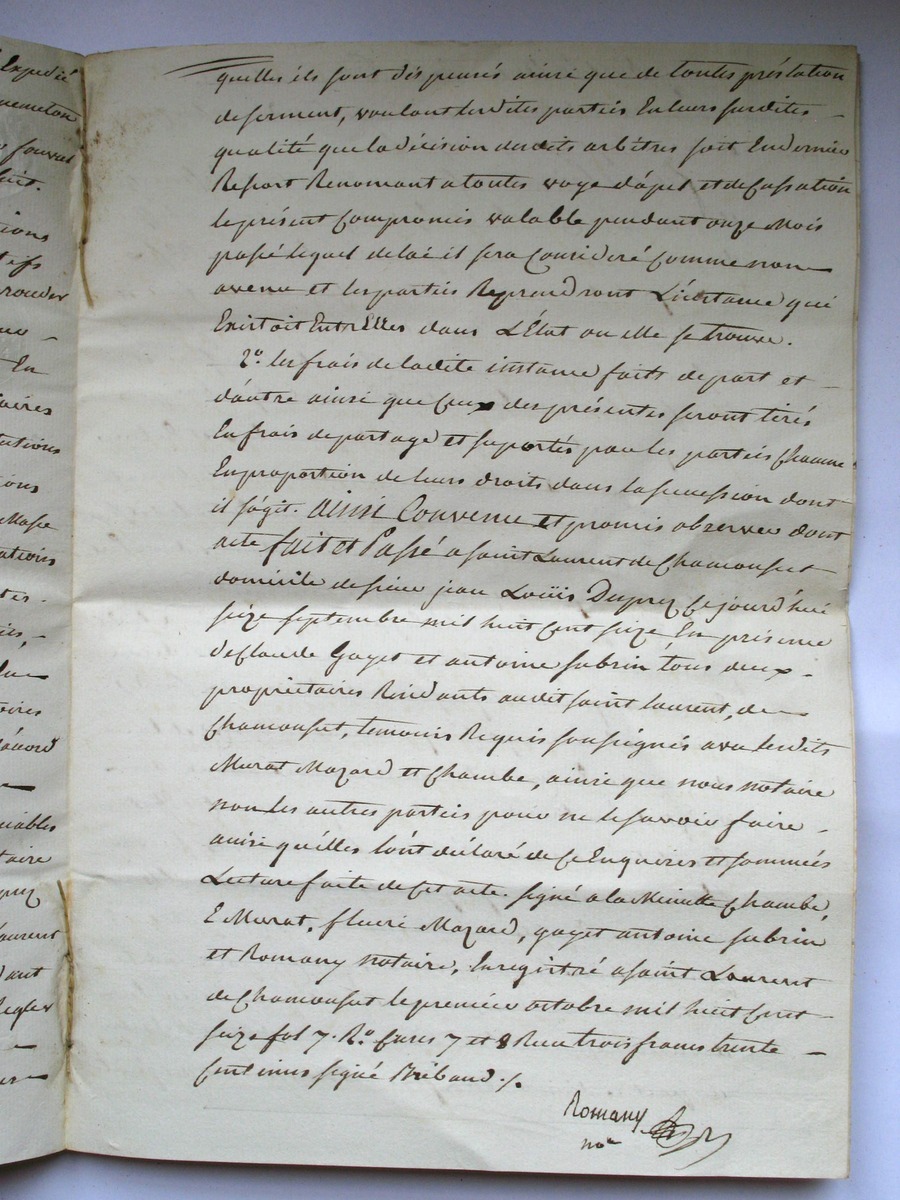 Expedié
fouvat
tions
tefs
En
taires
tations
ions
Mase
ations
tes.
toires
iables
taire
prez
Laurent
dant
Regler
quelles ils sont dispensés ainsi que de toutes préstation
de serment, voulant lesdites parties En leurs susdites
qualité que la décision desdits arbitres soit En dernier
Resort Renomant a toutes voye d'apel et de Cassation
le présent Compromis valable pendant onze Mois
passé lequel delai il sera Consideré Comme non
avenu et les parties Reprendront L'instance qui
Existoit Entr'Elles dans L'État ou elle se trouve.
2o. les frais de ladite instance faits de part et
d'autre ainsi que Ceux des présentes seront tirés
En frais de partage et suportés par les parties chacune
En proportion de leurs droits dans la succession dont
il s'agit. Ainsi Convenu et promis observer dont
acte fait et Passé a saint Laurent de Chamousset
domicile de sieur jean Loüis Duprez Ce jourd'hui
seize septembre mil huit Cent seize En présence
de Claude Goyet et antoine subrin tous deux
propriétaires Residants audit saint laurent, de
Chamousset, temoins Requis soussignés avec lesdits
Murat Mazard et Chambe, ainsi que nous notaire
non les autres parties pour ne le savoir faire
ainsi qu'elles l'ont déclaré de Ce Enquises et sommées
Lecture faite de Cet acte. signé a la Minutte Chambe,
E Murat, fleuri Mazard, goyet antoine subrin
et Romany notaire, Enregistré a saint Laurent
de Chamousset le premier octobre mil huit Cent
seize fol 7. Ro. Cases 7 et 8 Recu trois francs trente
Centimes signé Brébaud ./.
Romany
nore